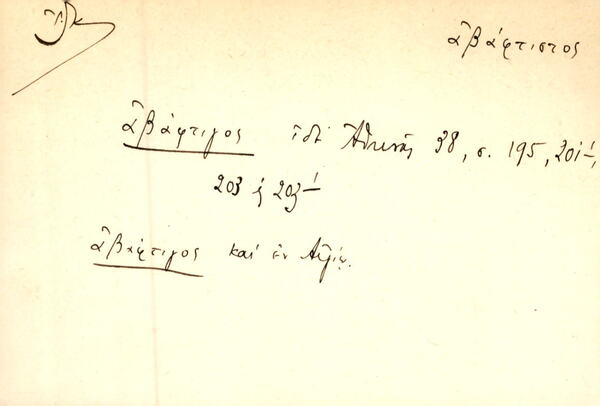 ἀβάφτιστος
ἀβάφτιγος ἰδ. Ἀθηνᾶς 38, σ. 195, 201,
203 ἑ 203
ἀβάφτιγος καί ἐν Αἰγίῳ.